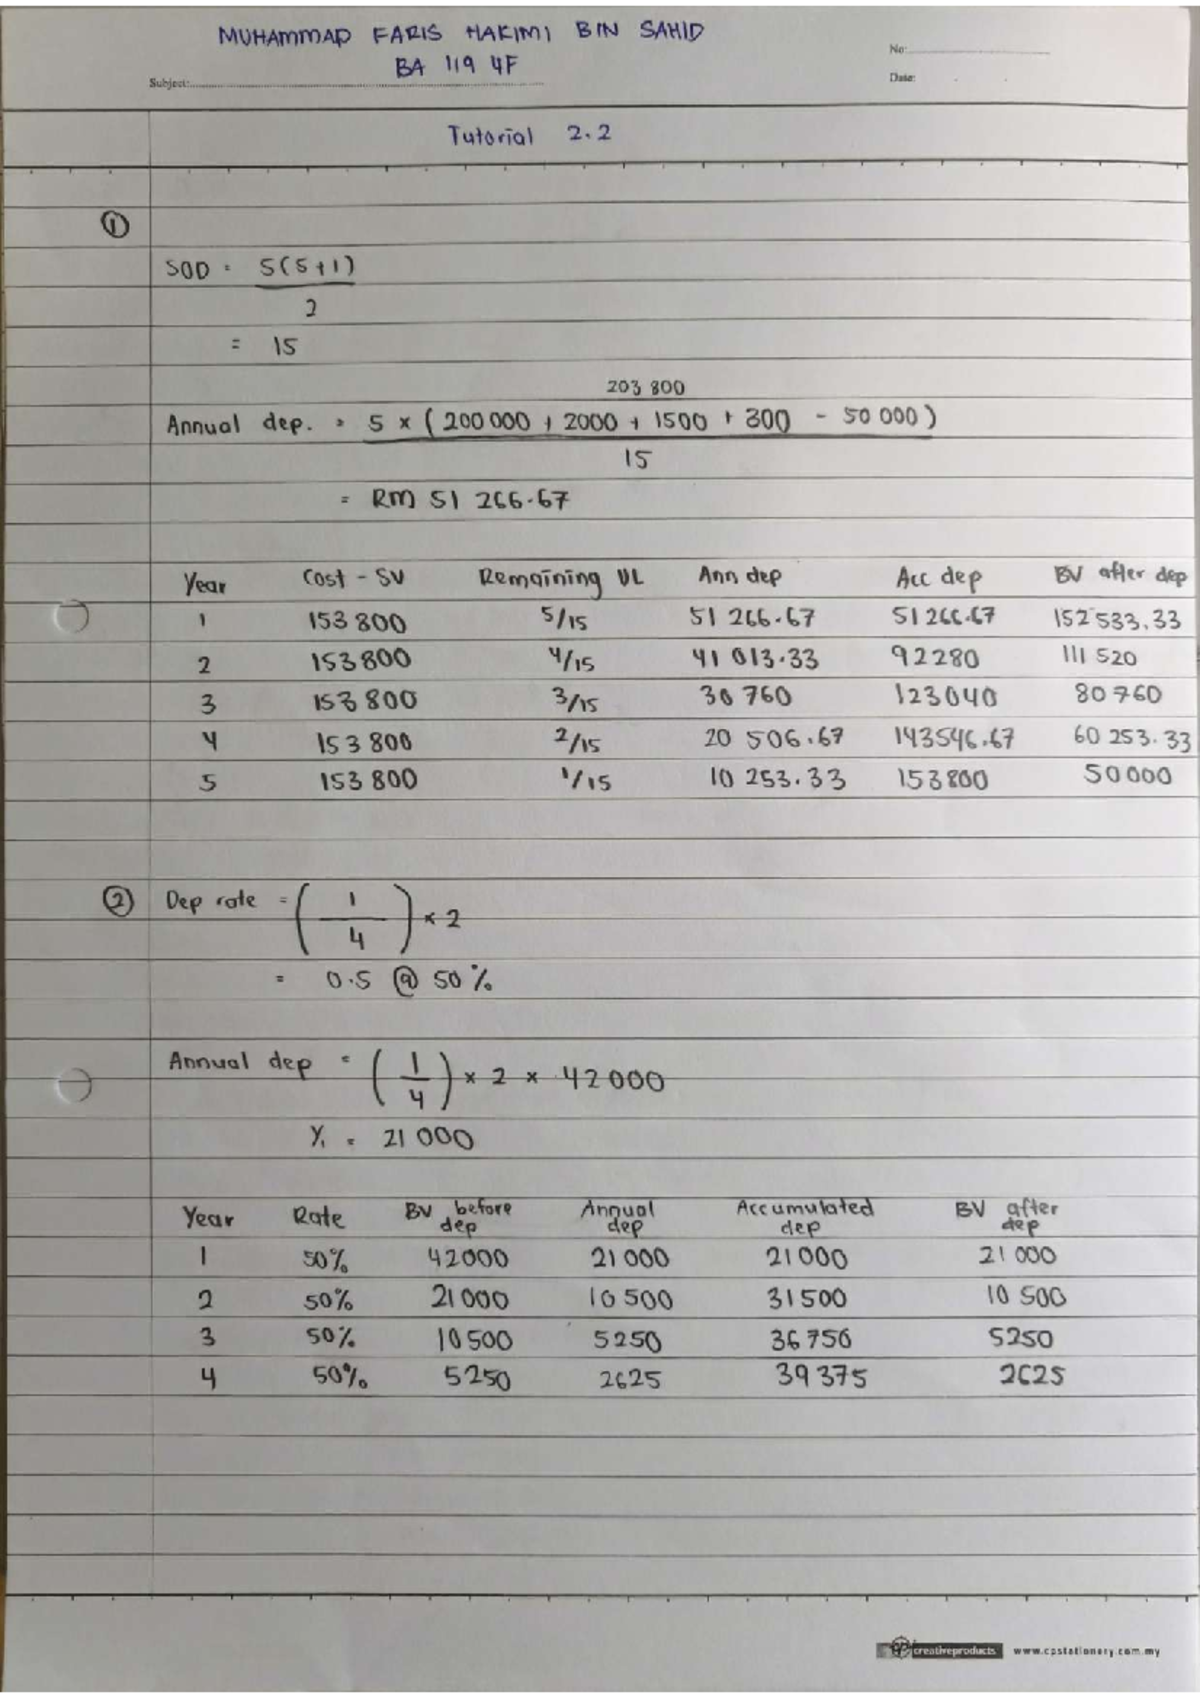 MUHAMMAD FARIS HAKIMI BIN SAHID
No:
BA 119 4F
Subject:
Date:
Tutorial 2.2
①
SOD = 5(5+1)
2
= 15
203 800
Annual dep. = 5 × (200 000 + 2000 + 1500 + 300 - 50 000)
15
= RM 51 266.67
Year Cost - SV Remaining UL Ann dep Acc dep BV after dep
1 153 800 5/15 51 266.67 51 266.67 152 533.33
2 153 800 4/15 41 013.33 92280 111 520
3 153 800 3/15 30 760 123040 80 760
4 153 800 2/15 20 506.67 143546.67 60 253.33
5 153 800 1/15 10 253.33 153800 50 000
② Dep rate = (1/4) × 2
= 0.5 @ 50%
Annual dep = (1/4) × 2 × 42 000
Y₁ = 21 000
Year Rate BV before dep Annual dep Accumulated dep BV after dep
1 50% 42000 21 000 21 000 21 000
2 50% 21000 10 500 31500 10 500
3 50% 10500 5250 36750 5250
4 50% 5250 2625 39375 2625
creativeproducts www.cpstationery.com.my